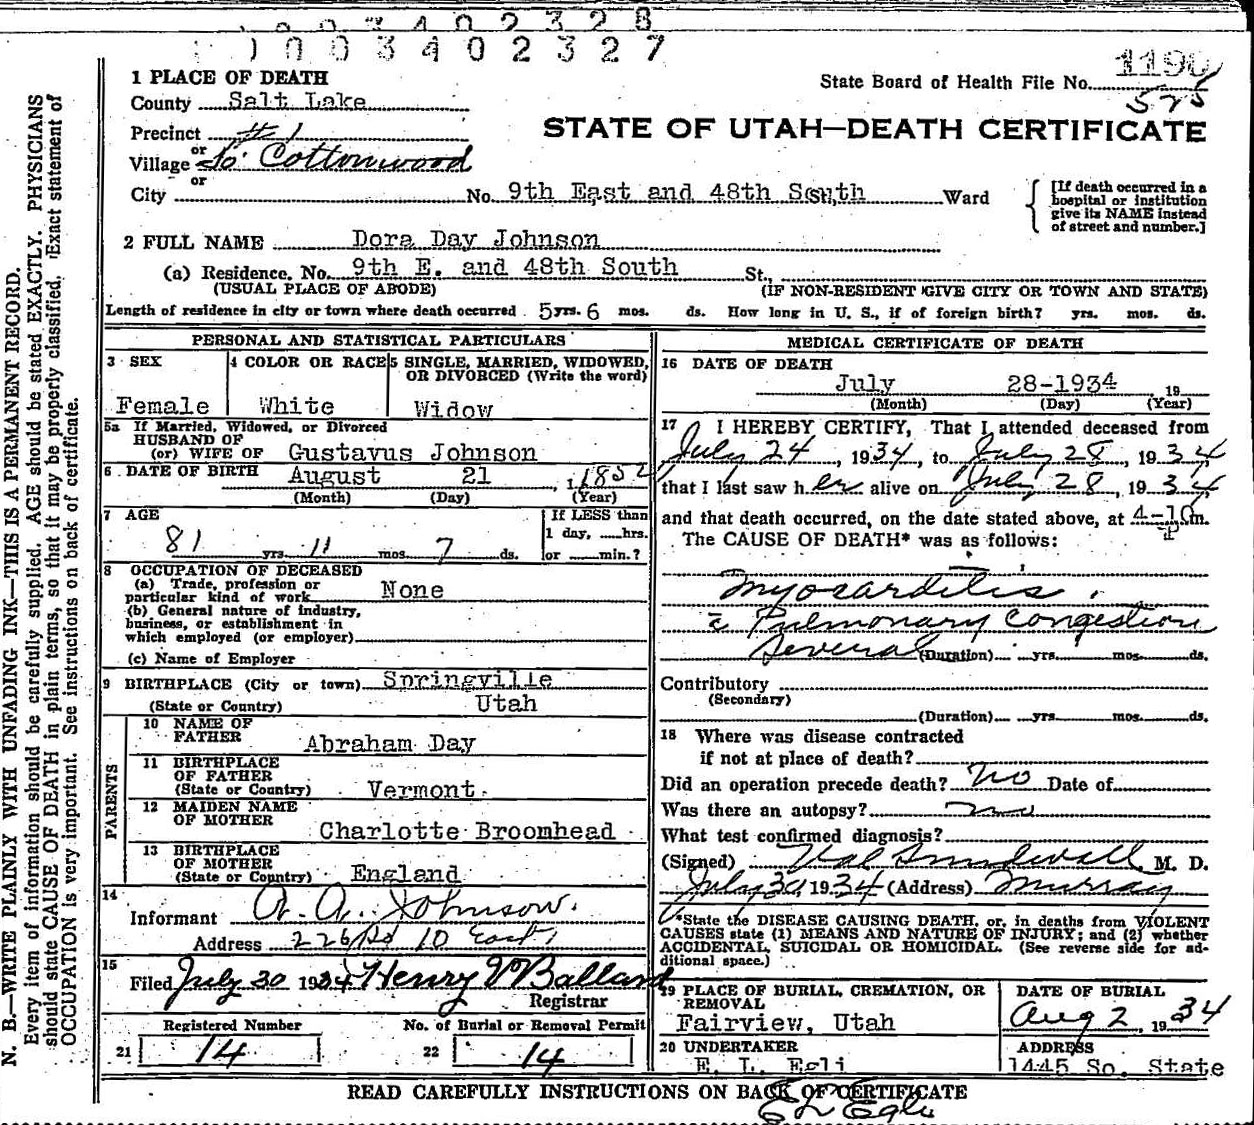 1003402328
1003402327
1 PLACE OF DEATH
State Board of Health File No. 1190
County Salt Lake
Precinct #1
or
STATE OF UTAH—DEATH CERTIFICATE
Village So. Cottonwood
or
City No. 9th East and 48th South Ward
[If death occurred in a hospital or institution give its NAME instead of street and number.]
2 FULL NAME Dora Day Johnson
(a) Residence. No. 9th E. and 48th South St.,
(USUAL PLACE OF ABODE) (IF NON-RESIDENT GIVE CITY OR TOWN AND STATE)
Length of residence in city or town where death occurred 5 yrs. 6 mos. ds. How long in U. S., if of foreign birth? yrs. mos. ds.
PERSONAL AND STATISTICAL PARTICULARS
3 SEX
Female
4 COLOR OR RACE
White
5 SINGLE, MARRIED, WIDOWED,
OR DIVORCED (Write the word)
Widow
5a If Married, Widowed, or Divorced
HUSBAND OF
(or) WIFE OF Gustavus Johnson
6 DATE OF BIRTH August 21, 1852
(Month) (Day) (Year)
7 AGE
81 yrs. 11 mos. 7 ds.
If LESS than
1 day, hrs.
or min.?
8 OCCUPATION OF DECEASED
(a) Trade, profession or
particular kind of work None
(b) General nature of industry,
business, or establishment in
which employed (or employer)
(c) Name of Employer
9 BIRTHPLACE (City or town) Springville
(State or Country) Utah
PARENTS
10 NAME OF
FATHER Abraham Day
11 BIRTHPLACE
OF FATHER
(State or Country) Vermont
12 MAIDEN NAME
OF MOTHER
Charlotte Broomhead
13 BIRTHPLACE
OF MOTHER
(State or Country) England
14
Informant A. A. Johnson.
Address 10 East
15
Filed July 30 1934 Henry Ballard
Registrar
Registered Number
21 14
No. of Burial or Removal Permit
22 14
MEDICAL CERTIFICATE OF DEATH
16 DATE OF DEATH
July 28-1934 19
(Month) (Day) (Year)
17 I HEREBY CERTIFY, That I attended deceased from
July 24, 1934, to July 28, 1934,
that I last saw her alive on July 28, 1934,
and that death occurred, on the date stated above, at 4-10 P m.
The CAUSE OF DEATH* was as follows:
Myocarditis.
c̄ Pulmonary Congestion
Several (Duration) yrs. mos. ds.
Contributory
(Secondary)
(Duration) yrs. mos. ds.
18 Where was disease contracted
if not at place of death?
Did an operation precede death? No Date of
Was there an autopsy? no
What test confirmed diagnosis?
(Signed) Val Sundwall M. D.
July 30 1934 (Address) Murray
*State the DISEASE CAUSING DEATH, or, in deaths from VIOLENT
CAUSES state (1) MEANS AND NATURE OF INJURY; and (2) whether
ACCIDENTAL, SUICIDAL OR HOMICIDAL. (See reverse side for ad-
ditional space.)
19 PLACE OF BURIAL, CREMATION, OR
REMOVAL
Fairview, Utah
DATE OF BURIAL
Aug 2, 1934
20 UNDERTAKER
E. L. Egli
ADDRESS
1445 So. State
READ CAREFULLY INSTRUCTIONS ON BACK OF CERTIFICATE
E L Egli
N. B.—WRITE PLAINLY WITH UNFADING INK—THIS IS A PERMANENT RECORD.
Every item of information should be carefully supplied. AGE should be stated EXACTLY. PHYSICIANS
should state CAUSE OF DEATH in plain terms, so that it may be properly classified. Exact statement of
OCCUPATION is very important. See instructions on back of certificate.